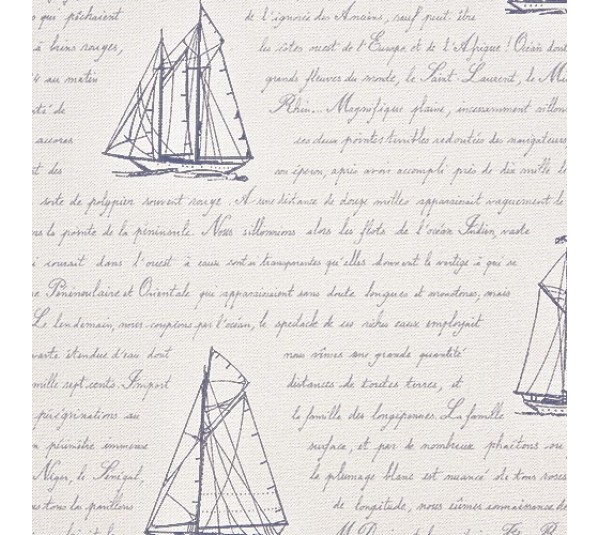 qui pêchaient de l'ignorée des Arnains, sauf peut-être
à brins rouges, les côtes ouest de l'Europe et de l'Afrique! Océan dont
au matin grands fleuves du monde, le Saint-Laurent, le M
té de Rhin... Magnifique plaine, incessamment sillon
accores ses deux pointes terribles redoutées des navigateurs
t des son éperon, après avoir accompli près de dix mille li
sorte de polypier souvent rouge. A une distance de douze milles apparaissait vaguement le
la pointe de la péninsule. Nous sillonnions alors les flots de l'océan Indien, vaste
i courait dans l'ouest à eaux sont transparentes qu'elles donnent le vertige à qui se
e Péninsulaire et Orientale qui apparaissaient sans doute longues et monotones, mais
Le lendemain, nous coupions par l'océan, le spectacle de ses riches eaux employait
vaste étendue d'eau dont nous vîmes une grande quantité
mille sept cents. Import distances de toutes terres, et
pérégrinations au la famille des longipennes. La famille
périmètre immense surface, et par de nombreux phaétons ou
Niger, le Sénégal, le plumage blanc est nuancé de tons roses
ous les pavillons de longitude, nous eûmes connaissance de